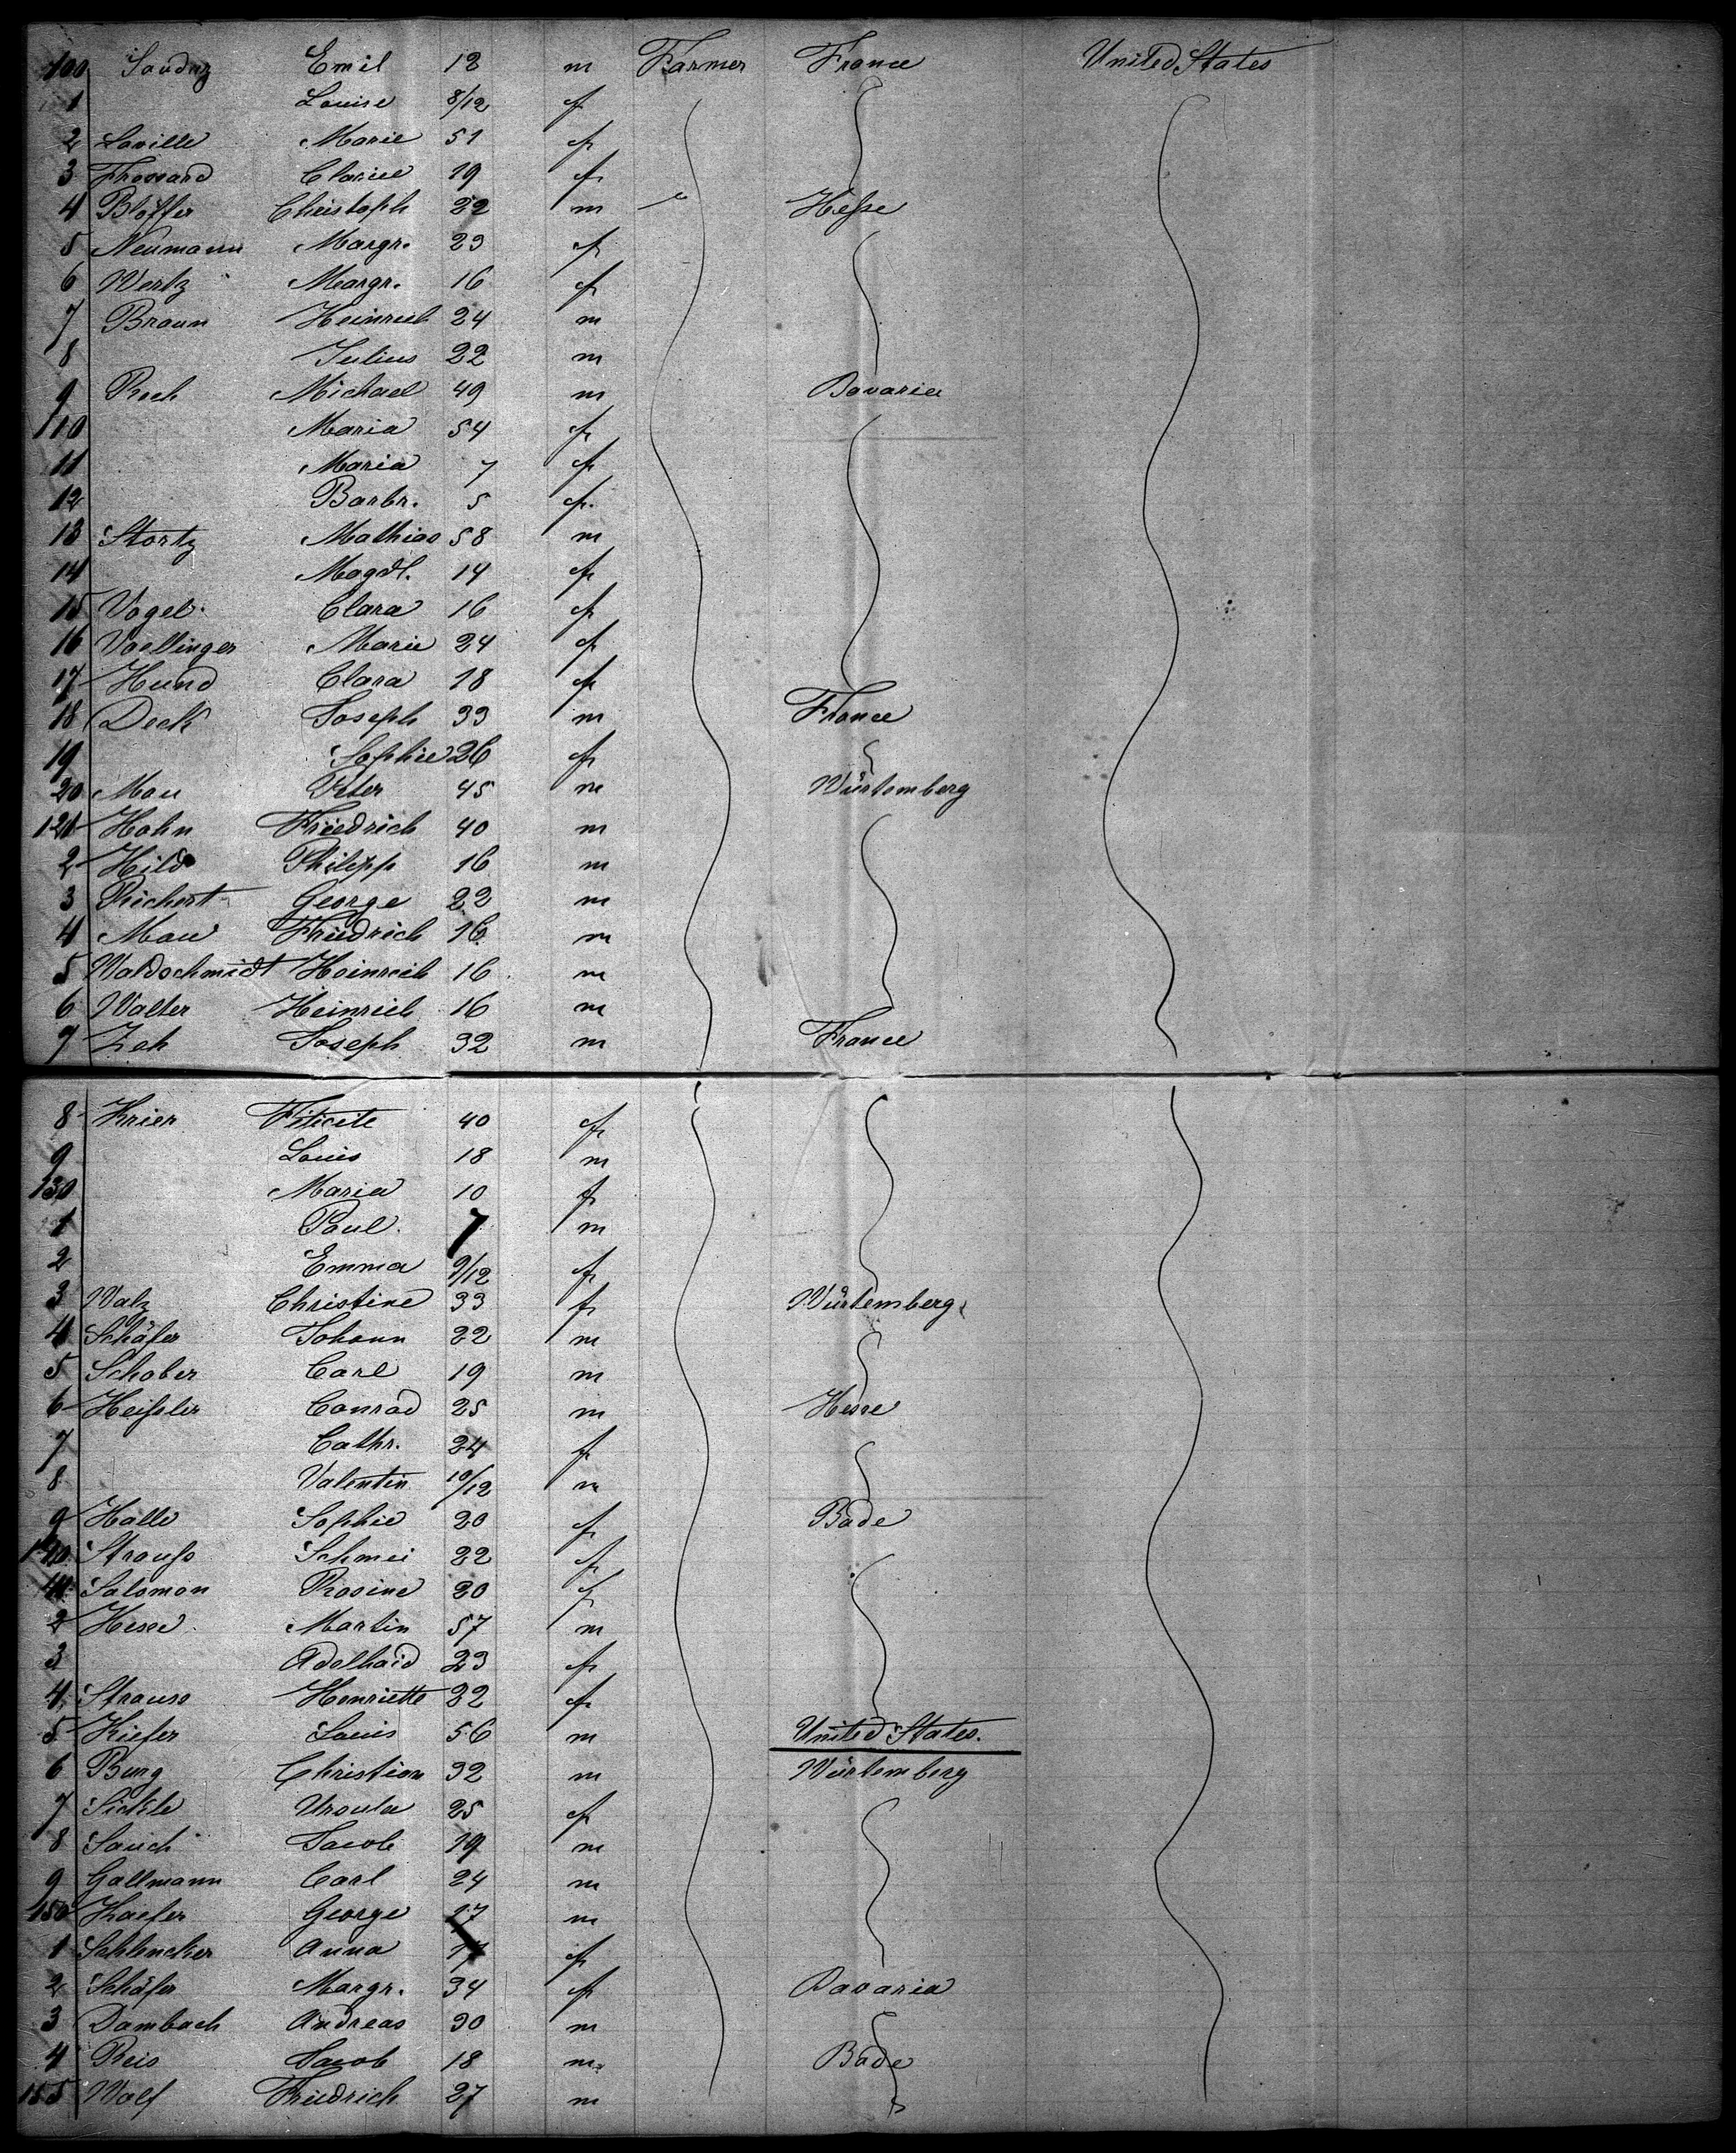 100 Emil 12 m Farmer France United States
1 Louise 8/12 f
2 Laville Marie 51 f
3 Frossard Clarice 19 f
4 Blöffer Christoph 22 m Heſse
5 Neumann Margr. 23 f
6 Wertz Margr. 16 f
7 Braun Heinrich 24 m
8 Julius 22 m
9 Rech Michael 49 m Bavaria
110 Maria 54 f
11 Maria 7 f
12 Barbr. 5 f.
13 Stortz Mathias 58 m
14 Magdl. 14 f
15 Vogel Clara 16 f
16 Voellinger Marie 24 f
17 Hund Clara 18 f
18 Deck Joseph 33 m France
19 Sophie 26 f
20 Mau Peter 45 m Würtemberg
121 Hahn Friedrich 40 m
2 Hild Philipp 16 m
3 Richert George 22 m
4 Mau Friedrich 16 m
5 Waldschmidt Heinrich 16 m
6 Walter Heinrich 16 m
7 Zeh Joseph 32 m France
8 Krier Felicite 40 f
9 Louis 18 m
130 Maria 10 f
1 Paul 7 m
2 Emma 9/12 f
3 Walz Christine 33 f Würtemberg
4 Schäfer Johann 22 m
5 Schober Carl 19 m
6 Heiſsler Conrad 25 m Hesse
7 Cathr. 24 f
8 Valentin 10/12 m
9 Halle Sophie 20 f Bade
140 Strauſs Schmei 22 f
141 Salomon Rosine 20 f
2 Hesse Martin 57 m
3 Adelhaid 23 f
4 Strauss Henriette 22 f
5 Kiefer Louis 56 m United States.
6 Burg Christian 32 m Würtemberg
7 Sickle Ursula 25 f
8 Jauch Jacob 19 m
9 Gallmann Carl 24 m
150 Kaefer George 17 m
1 Schlencker Anna f
2 Schäfer Margr. 34 f Bavaria
3 Dambach Andreas 30 m
4 Reis Jacob 18 m. Bade
155 Wolf Friedrich 27 m